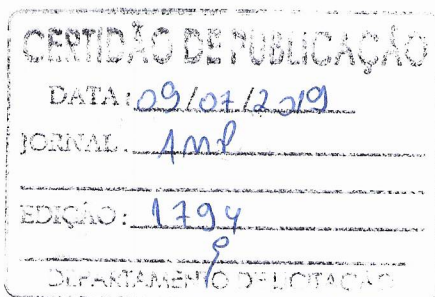 CERTIDÃO DE PUBLICAÇÃO
DATA: 09/07/2019
JORNAL: AMP
EDIÇÃO: 1794
DEPARTAMENTO DE LICITAÇÃO